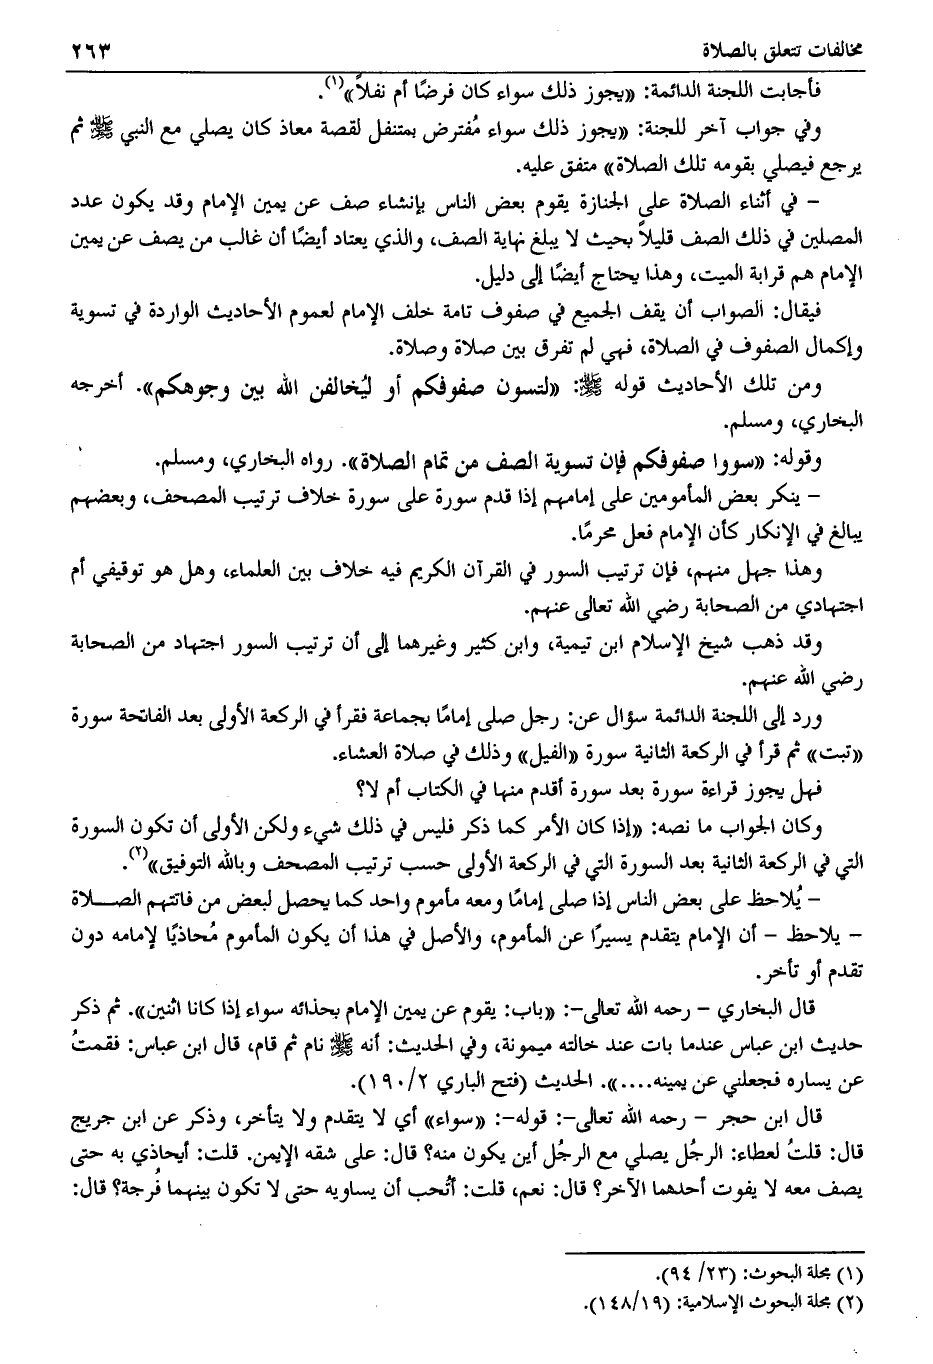 مخالفات تتعلق بالصلاة ٢٦٣
فأجابت اللجنة الدائمة: «يجوز ذلك سواء كان فرضًا أم نفلاً»(١).
وفي جواب آخر للجنة: «يجوز ذلك سواء مُفترض بمتنفل لقصة معاذ كان يصلي مع النبي ﷺ ثم
يرجع فيصلي بقومه تلك الصلاة» متفق عليه.
– في أثناء الصلاة على الجنازة يقوم بعض الناس بإنشاء صف عن يمين الإمام وقد يكون عدد
المصلين في ذلك الصف قليلاً بحيث لا يبلغ نهاية الصف، والذي يعتاد أيضًا أن غالب من يصف عن يمين
الإمام هم قرابة الميت، وهذا يحتاج أيضًا إلى دليل.
فيقال: الصواب أن يقف الجميع في صفوف تامة خلف الإمام لعموم الأحاديث الواردة في تسوية
وإكمال الصفوف في الصلاة، فهي لم تفرق بين صلاة وصلاة.
ومن تلك الأحاديث قوله ﷺ: «لتسون صفوفكم أو ليُخالفن الله بين وجوهكم». أخرجه
البخاري، ومسلم.
وقوله: «سووا صفوفكم فإن تسوية الصف من تمام الصلاة». رواه البخاري، ومسلم.
– ينكر بعض المأمومين على إمامهم إذا قدم سورة على سورة خلاف ترتيب المصحف، وبعضهم
يبالغ في الإنكار كأن الإمام فعل محرمًا.
وهذا جهل منهم، فإن ترتيب السور في القرآن الكريم فيه خلاف بين العلماء، وهل هو توقيفي أم
اجتهادي من الصحابة رضي الله تعالى عنهم.
وقد ذهب شيخ الإسلام ابن تيمية، وابن كثير وغيرهما إلى أن ترتيب السور اجتهاد من الصحابة
رضي الله عنهم.
ورد إلى اللجنة الدائمة سؤال عن: رجل صلى إمامًا بجماعة فقرأ في الركعة الأولى بعد الفاتحة سورة
«تبت» ثم قرأ في الركعة الثانية سورة «الفيل» وذلك في صلاة العشاء.
فهل يجوز قراءة سورة بعد سورة أقدم منها في الكتاب أم لا؟
وكان الجواب ما نصه: «إذا كان الأمر كما ذكر فليس في ذلك شيء ولكن الأولى أن تكون السورة
التي في الركعة الثانية بعد السورة التي في الركعة الأولى حسب ترتيب المصحف وبالله التوفيق»(٢).
– يُلاحظ على بعض الناس إذا صلى إمامًا ومعه مأموم واحد كما يحصل لبعض من فاتتهم الصـــلاة
– يلاحظ – أن الإمام يتقدم يسيرًا عن المأموم، والأصل في هذا أن يكون المأموم مُحاذيًا لإمامه دون
تقدم أو تأخر.
قال البخاري – رحمه الله تعالى–: «باب: يقوم عن يمين الإمام بحذائه سواء إذا كانا اثنين». ثم ذكر
حديث ابن عباس عندما بات عند خالته ميمونة، وفي الحديث: أنه ﷺ نام ثم قام، قال ابن عباس: فقمتُ
عن يساره فجعلني عن يمينه....». الحديث (فتح الباري ٢/ ١٩٠).
قال ابن حجر – رحمه الله تعالى–: قوله–: «سواء» أي لا يتقدم ولا يتأخر، وذكر عن ابن جريج
قال: قلتُ لعطاء: الرجُل يصلي مع الرجُل أين يكون منه؟ قال: على شقه الإيمن. قلت: أيحاذي به حتى
يصف معه لا يفوت أحدهما الآخر؟ قال: نعم، قلت: أتُحب أن يساويه حتى لا تكون بينهما فُرجة؟ قال:
(١) مجلة البحوث: (٢٣/ ٩٤).
(٢) مجلة البحوث الإسلامية: (١٩/ ١٤٨).